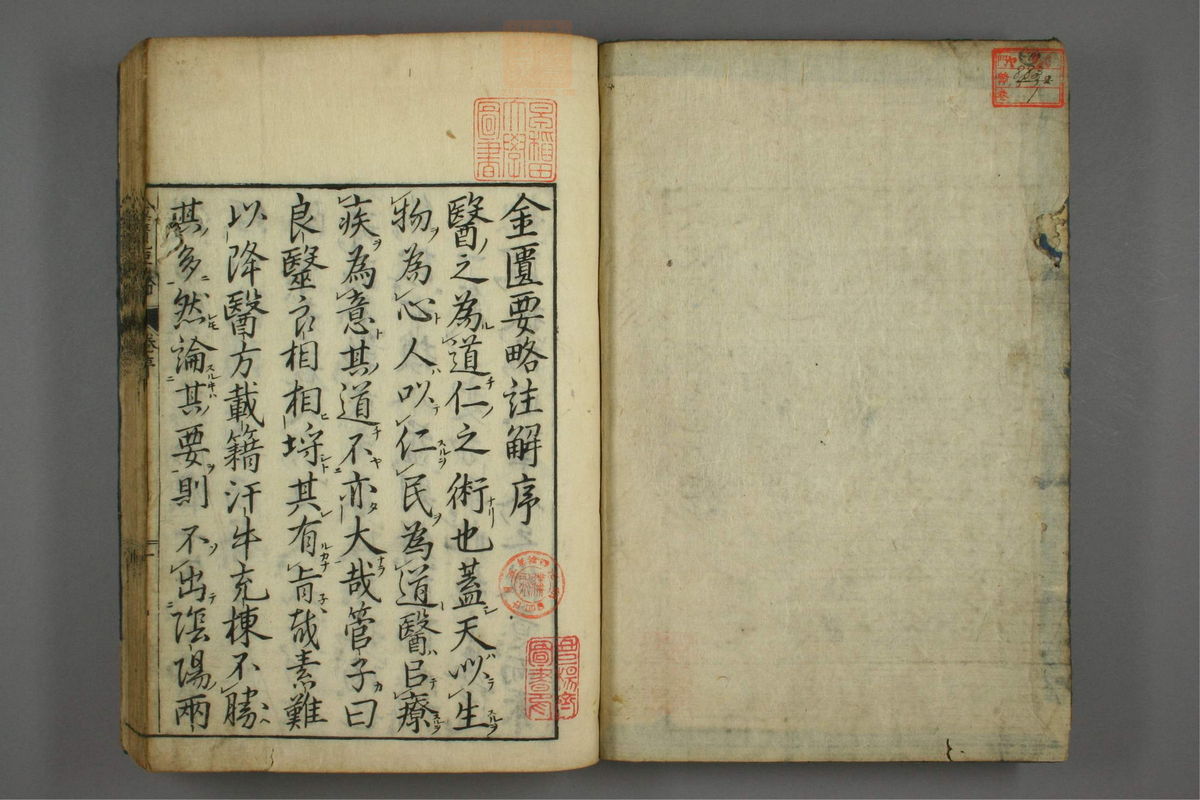 金匱要略註解序
醫之為道仁之術也蓋天以生
物為心人以仁民為道醫㠯療
疾為意其道不亦大哉管子曰
良毉良相相埒其有㫖哉素難
以降醫方載籍汗牛充棟不勝
其多然論其要則不出陰陽兩
早稻田
大學
圖書